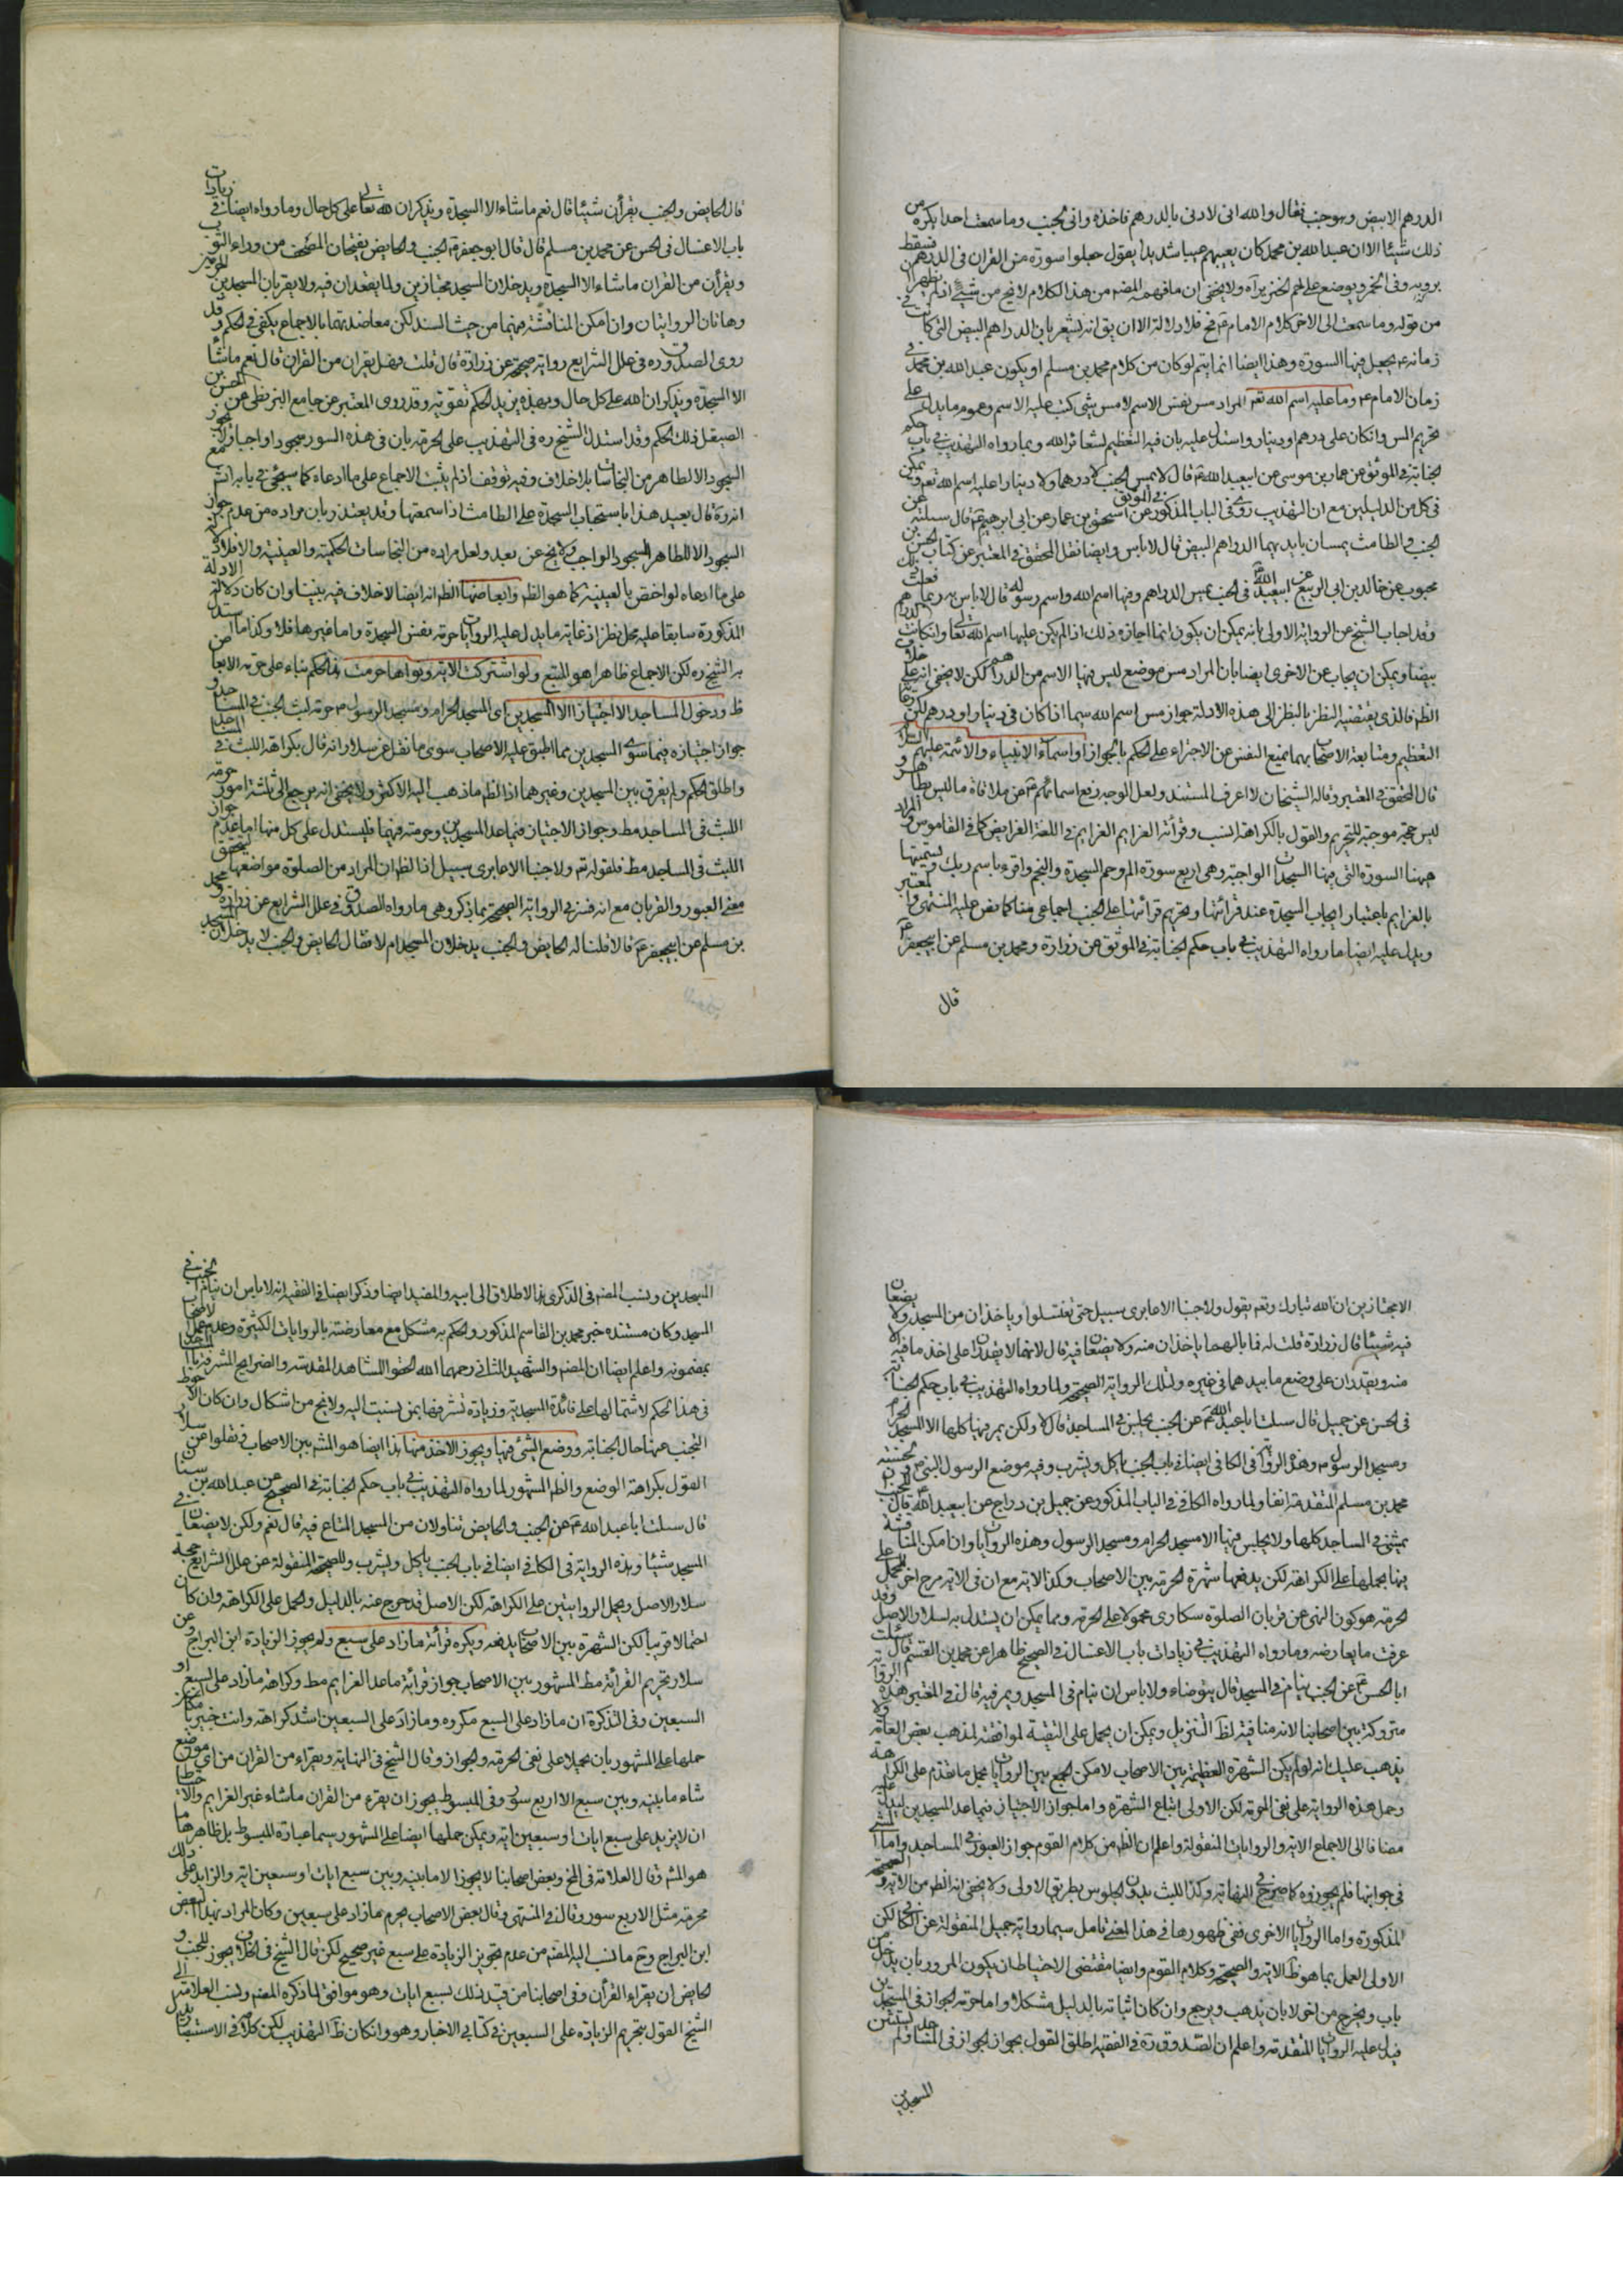 الدرهم الابيض وهو جنب فقال والله انى لاوتى بالدرهم فاخذه وانى لجنب وما سمعت احدا يكره من
ذلك شيئا الا ان عبد الله بن محمد كان يعيبهم عيبا شديدا يقول جعلوا سورة من القران فى الدرهم
فى الخمر ويوضع على لحم الخنزير آه ولا يخفى ان ما فهمه المصنف من هذا الكلام لا يخ من شيئ اذ لم يظهر
من قوله وما سمعت الى الاخر كلام الامام ع فلا دلالة الا ان يق انه يشعر بان الدراهم البيض التى كانت فى
زمانه ع يجعل فيها السورة وهذا ايضا انما يتم لو كان من كلام محمد بن مسلم او يكون عبد الله بن محمد فى
زمان الامام ع وما عليه اسم الله تعالى المراد مس نفس الاسم لا مس شئ كتب عليه الاسم وعموم ما يدل على
تحريم المس وان كان على درهم او دينار واستدل عليه بان فيه التعظيم لشعائر الله وبما رواه التهذيب فى باب حكم
الجنابة فى الموثق عن عمار بن موسى عن ابيعبد الله ع قال لا يمس الجنب لا درهما ولا دينارا عليه اسم الله تعالى ويمكن
فى كل من الدليلين مع ان التهذيب روى فى الباب المذكور فى الموثق عن اسحق بن عمار عن ابى ابرهيم ع قال سئلته عن
الجنب والطامث يمسان بايديهما الدراهم البيض قال لا باس وايضا نقل المحقق فى المعتبر عن كتاب الحسن بن
محبوب عن خالد عن ابى الربيع عن ابيعبد الله ع فى الجنب يمس الدراهم وفيها اسم الله واسم رسوله قال لا باس به ربما فعلت ذلك
وقد اجاب الشيخ عن الرواية الاولى بانه يمكن ان يكون انما اجازه ذلك اذا لم يكن عليها اسم الله تعالى وان كانت الدراهم
بيضا ويمكن ان يجاب عن الاخرى ايضا بان المراد مس موضع ليس فيها الاسم من الدراهم لكن لا يخفى انه خلاف
الظ فالذى يقتضيه النظر بالنظر الى هذه الادلة جواز مس اسم الله سيما اذا كان فى دينار او درهم لكن رعاية
التعظيم ومتابعة الاصحاب بهما تمنع النفس عن الاجتراء على الحكم بالجواز او اسماء الانبياء والائمة عليهم السلام
قال المحقق فى المعتبر وقاله الشيخان لا اعرف المستند ولعل الوجه رفع اسمائهم ع عن ملاقاة ما ليس بطاهر و
ليس حجة موجبة للتحريم والقول بالكراهة انسب وقرائة العزايم العزايم فى اللغة الفرايض كما فى القاموس والمراد
هيهنا السورة التى فيها السجدات الواجبة وهى اربع سورة الم وحم السجدة والنجم واقرء باسم ربك وتسميتها
بالعزايم باعتبار ايجاب السجدة عند قرائتها وتحريم قرائتها على الجنب اجماعى منا كما نص عليه المنتهى والمعتبر
ويدل عليه ايضا ما رواه التهذيب فى باب حكم الجنابة فى الموثق عن زرارة ومحمد بن مسلم عن ابيجعفر ع
قال
قال الحايض والجنب يقرأن شيئا قال نعم ما شاء الا السجدة ويذكران الله تعالى على كل حال وما رواه ايضا فى زيادات
باب الاغسال فى الحسن عن محمد بن مسلم قال قال ابو جعفر ع الجنب والحايض يفتحان المصحف من وراء الثوب
ويقرأن من القران ما شاء الا السجدة ويدخلان المسجد مجتازين ولا يقعدان فيه ولا يقربان المسجدين الحرمين
وهاتان الروايتان وان امكن المناقشة فيهما من حيث السند لكن معاضدتهما بالاجماع يكفى فى الحكم وقد
روى الصدوق ره فى علل الشرايع رواية صحيحة عن زرارة قال قلت فهل يقران من القران قال نعم ما شاء
الا السجدة ويذكران الله على كل حال وبهذه يزيد الحكم تقوية وقد روى المعتبر عن جامع البزنطى عن الحسن
الصيقل ذلك الحكم وقد استدل الشيخ ره فى التهذيب على الحرمة بان فى هذه السور سجودا واجبا ولا يجوز
السجود الا لطاهر من النجاسات بلا خلاف وفيه توقف اذ لم يثبت الاجماع على ما ادعاه كما سيجئ فى بابه
انه ره قال بعيد هذا باستحباب السجدة على الطامث اذا سمعتها وقد يعتذر بان مراده من عدم جواز
السجود الا لطاهر السجود الواجب ولا يخ عن بعد ولعل مراده من النجاسات الحكمية والعينية والا فلا
على ما ادعاه لو اخص بالعينية كما هو الظ وابعاضها الظ انه ايضا لا خلاف فيه بيننا وان كان دلالة الادلة
المذكورة سابقا عليه محل نظر اذ غاية ما يدل عليه الروايات حرمة نفس السجدة واما غيرها فلا وكذا ما استدل
به الشيخ ره لكن الاجماع ظاهرا هو المتبع ولو اشتركت الاية ونواها حرمت هذا الحكم بناء على حرمة الابعاض
ظ ودخول المساجد الا اجتيازا الا المسجدين اى المسجد الحرام ومسجد الرسول ص حرمة لبث الجنب فى المساجد و
جواز اجتيازه فيما سوى المسجدين مما اطبق عليه الاصحاب سوى ما نقل عن سلار انه قال بكراهة اللبث فى المساجد
واطلق الحكم ولم يفرق بين المسجدين وغيرهما اذ الظ ما ذهب اليه الاكثر ولا يخفى انه يرجع الى ثلثة امور حرمة
اللبث فى المساجد مط وجواز الاجتياز فيما عدا المسجدين وحرمته فيهما فليستدل على كل منها اما عدم جواز
اللبث فى المساجد مط فلقوله تعالى ولا جنبا الا عابرى سبيل اذ الظ ان المراد من الصلوة مواضعها ليتحقق
معنى العبور والقربان مع انه فسر فى الرواية الصحيحة بما يذكر وهى ما رواه الصدوق فى علل الشرايع عن زرارة ومحمد
بن مسلم عن ابيجعفر ع قالا قلنا له الحايض والجنب يدخلان المسجد ام لا فقال الحايض والجنب لا يدخلان المسجد
الا مجتازين ان الله تبارك وتعالى يقول ولا جنبا الا عابرى سبيل حتى تغتسلوا وياخذان من المسجد ولا يضعان
فيه شيئا قال زرارة قلت له فما بالهما ياخذان منه ولا يضعان فيه قال لانهما لا يقدران على اخذ ما فيه الا
منه ويقدران على وضع ما بيدهما فى غيره ولتلك الرواية الصحيحة ولما رواه التهذيب فى باب حكم الجنابة
فى الحسن عن جميل قال سئلت ابا عبد الله ع عن الجنب يجلس فى المساجد قال لا ولكن يمر فيها كلها الا المسجد الحرام
ومسجد الرسول ص وهذه الرواية فى الكافى ايضا فى باب الجنب ياكل ويشرب وفيه موضع الرسول النبى ص
محمد بن مسلم المتقدمة انفا ولما رواه الكافى فى الباب المذكور عن جميل بن دراج عن ابيعبد الله ع قال للجنب ان
يمشى فى المساجد كلها ولا يجلس فيها الا المسجد الحرام ومسجد الرسول وهذه الروايات وان امكن المناقشة
فيها بحملها على الكراهة لكن يدفعها شهرة الحرمة بين الاصحاب وكذا الاية مع ان فى الاية مرجح اخر للحمل على
الحرمة هو كون النهى عن قربان الصلوة سكارى محمولا على الحرمة ومما يمكن ان يستدل به لسلار الاصل وقد
عرفت ما يعارضه وما رواه التهذيب فى زيادات باب الاغسال فى الصحيح ظاهرا عن محمد بن القسم قال سئلت
ابا الحسن ع عن الجنب ينام فى المسجد قال يتوضاء ولا باس ان ينام فى المسجد ويمر فيه قال فى المعتبر هذه الرواية
متروكة بين اصحابنا لانه منافية لظ التنزيل ويمكن ان يحمل على التقية لموافقته لمذهب بعض العامة ولا
يذهب عليك انه لو لم يكن الشهرة العظيمة بين الاصحاب لامكن الجمع بين الروايات بحمل ما تقدم على الكراهة
وحمل هذه الرواية على نفى الحرمة لكن الاولى اتباع الشهرة واما جواز الاجتياز فيما عدا المسجدين ليدل عليه
مضافا الى الاجماع الاية والروايات المنقولة واعلم ان الظ من كلام القوم جواز العبور فى المساجد واما المشى
فى جوانبها فلم يجوزوه كما صرح فى النهاية وكذا اللبث بدون الجلوس بطريق الاولى ولا يخفى انه الظ من الاية والصحيحة
المذكورة واما الروايات الاخرى ففى ظهورها فى هذا المعنى تامل سيما رواية جميل المنقولة عن الكافى لكن
الاولى العمل بما هو ظ الاية والصحيحة وكلام القوم وايضا مقتضى الاحتياط ان يكون المرور بان يدخل من
باب ويخرج من اخر لا بان يذهب ويرجع وان كان اثباته بالدليل مشكلا واما حرمة الجواز فى المسجدين
فيدل عليه الروايات المتقدمة واعلم ان الصدوق ره فى الفقيه اطلق القول بجواز الجواز فى المساجد ولم يستثن
المسجدين
المسجدين ونسب المصنف فى الذكرى هذا الاطلاق الى ابيه والمفيد ايضا وذكر ايضا فى الفقيه انه لا باس ان ينام الجنب فى
المسجد وكان مستنده خبر محمد بن القاسم المذكور والحكم به مشكل مع معارضته بالروايات الكثيرة وعدم عمل الاصحاب
بمضمونه واعلم ايضا ان المصنف والشهيد الثانى رحمهما الله الحقوا المشاهد المقدسة والضرايح المشرفة بالمساجد
فى هذا الحكم لاشتمالها على فائدة المسجدية وزيادة تشرفها بمن نسبت اليه ولا يخ من اشكال وان كان الاحوط
التجنب عنها حال الجنابة ووضع الشئ فيها ويجوز الاخذ منها هذا ايضا هو المش بين الاصحاب ونقلوا عن سلار
القول بكراهة الوضع والظ المشهور لما رواه التهذيب فى باب حكم الجنابة فى الصحيح عن عبد الله بن سنان
قال سئلت ابا عبد الله ع عن الجنب والحايض يتناولان من المسجد المتاع فيه قال نعم ولكن لا يضعان فى
المسجد شيئا وهذه الرواية فى الكافى ايضا فى باب الجنب ياكل ويشرب وللصحيحة المنقولة عن علل الشرايع حجة
سلار الاصل ويحمل الروايتين على الكراهة لكن الاصل قد خرج عنه بالدليل والحمل على الكراهة وان كان
احتمالا قريبا لكن الشهرة بين الاصحاب يدفعه ويكره قرائة ما زاد على سبع ولم يجوز الزيادة ابن البراج وعن
سلار تحريم القرائة مط المشهور بين الاصحاب جواز قرائة ما عدا العزايم مط وكراهة ما زاد على السبع او
السبعين وفى التذكرة ان ما زاد على السبع مكروه وما زاد على السبعين اشد كراهة وانت خبير بامكان
حملها على المشهور بان يحملا على نفى الحرمة والجواز وقال الشيخ فى النهاية ويقراء من القران من اى موضع
شاء ما بينه وبين سبع الا اربع سور وفى المبسوط يجوز ان يقرء من القران ما شاء غير العزايم والاحتياط
ان لا يزيد على سبع ايات او سبعين اية ويمكن حملها ايضا على المشهور سيما عبارة المبسوط بل ظاهرها ما
هو المش وقال العلامة فى المخ وبعض اصحابنا لا يجوز الا ما بينه وبين سبع ايات او سبعين اية والزايد على ذلك
محرمة مثل الاربع سور وقال فى المنتهى وقال بعض الاصحاب يحرم ما زاد على سبعين وكان المراد بهذا البعض
ابن البراج وح ما نسب اليه المصنف من عدم تجويز الزيادة على سبع غير صحيح لكن قال الشيخ فى الخلاف يجوز للجنب و
الحايض ان يقراء القرأن وفى اصحابنا من قيد ذلك بسبع ايات وهو موافق لما ذكره المصنف ونسب العلامة الى
الشيخ القول بتحريم الزيادة على السبعين فى كتابى الاخبار وهو وان كان ظ التهذيب لكن كلامه فى الاستبصار يدل